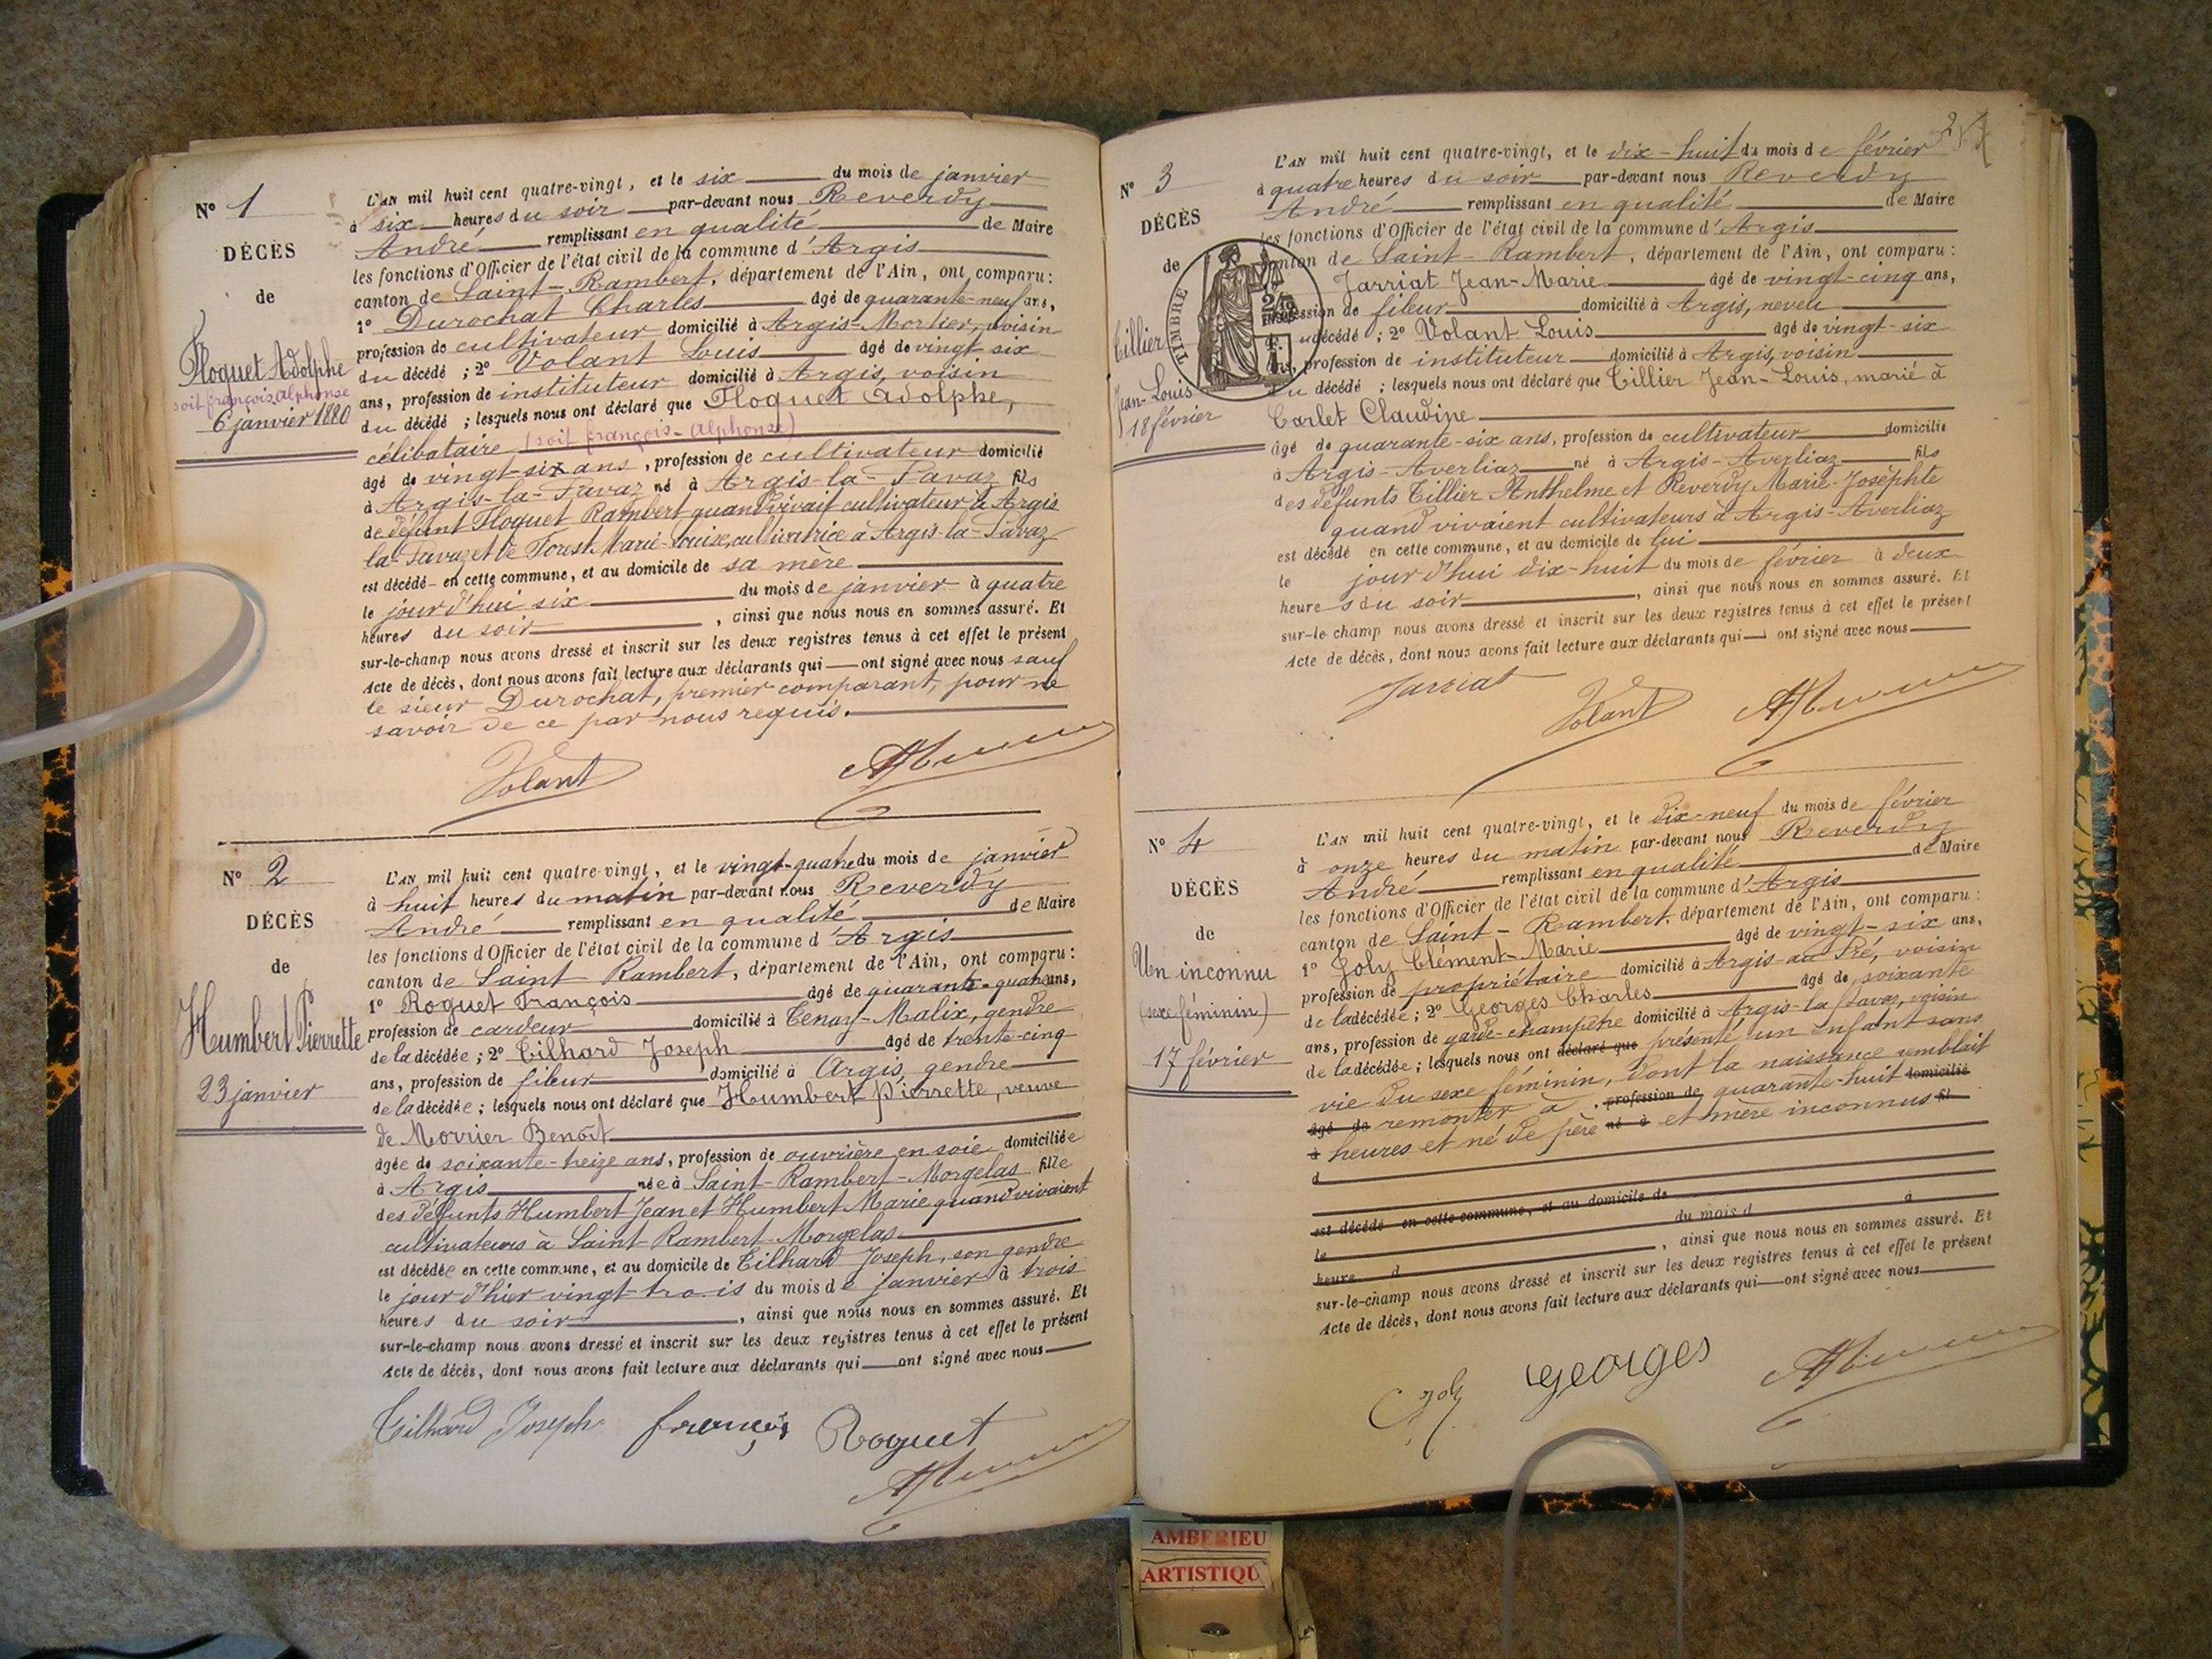 N° 1
DÉCÈS
de
Floquet Adolphe
soit françois alphonse
6 janvier 1880
L'AN mil huit cent quatre-vingt, et le six du mois de janvier
à six heures du soir par-devant nous Reverdy
André remplissant en qualité de Maire
les fonctions d'Officier de l'état civil de la commune d'Argis
canton de Saint-Rambert, département de l'Ain, ont comparu:
1° Durochat Charles âgé de quarante-neuf ans,
profession de cultivateur domicilié à Argis-Mortier, voisin
du décédé ; 2° Volant Louis âgé de vingt six
ans, profession de instituteur domicilié à Argis, voisin
du décédé ; lesquels nous ont déclaré que Floquet Adolphe,
célibataire (soit françois-Alphonse)
âgé de vingt-six ans, profession de cultivateur domicilié
à Argis-la-Pavaz né à Argis-la-Pavaz fils
de défunt Floquet Rambert quand vivait cultivateur à Argis
la-Pavaz et de Forest Marie-Louise, cultivatrice à Argis-la-Pavaz
est décédé en cette commune, et au domicile de sa mère
le jourd'hui six du mois de janvier à quatre
heures du soir , ainsi que nous nous en sommes assuré. Et
sur-le-champ nous avons dressé et inscrit sur les deux registres tenus à cet effet le présent
Acte de décès, dont nous avons fait lecture aux déclarants qui ont signé avec nous sauf
le sieur Durochat, premier comparant, pour ne
savoir de ce par nous requis.
Volant
N° 2
DÉCÈS
de
Humbert Pierrette
23 janvier
L'AN mil huit cent quatre-vingt, et le vingt-quatre du mois de janvier
à huit heures du matin par-devant nous Reverdy
André remplissant en qualité de Maire
les fonctions d'Officier de l'état civil de la commune d'Argis
canton de Saint Rambert, département de l'Ain, ont comparu:
1° Roguet François âgé de quarante-quatre ans,
profession de cardeur domicilié à Tenay-Malix, gendre
de la décédée ; 2° Tilhard Joseph âgé de trente-cinq
ans, profession de fileur domicilié à Argis, gendre
de la décédée ; lesquels nous ont déclaré que Humbert Pierrette, veuve
de Morrier Benoît
âgée de soixante-treize ans, profession de ouvrière en soie domiciliée
à Argis née à Saint-Rambert-Morgelas fille
des défunts Humbert Jean et Humbert Marie quand vivaient
cultivateurs à Saint-Rambert-Morgelas
est décédée en cette commune, et au domicile de Tilhard Joseph, son gendre
le jour d'hier vingt trois du mois de janvier à trois
heures du soir , ainsi que nous nous en sommes assuré. Et
sur-le-champ nous avons dressé et inscrit sur les deux registres tenus à cet effet le présent
Acte de décès, dont nous avons fait lecture aux déclarants qui ont signé avec nous
Tilhard Joseph françois Roguet
2
N° 3
DÉCÈS
de
TIMBRE
Tillier
Jean-Louis
18 février
L'AN mil huit cent quatre-vingt, et le dix-huit du mois de février
à quatre heures du soir par-devant nous Reverdy
André remplissant en qualité de Maire
les fonctions d'Officier de l'état civil de la commune d'Argis
canton de Saint-Rambert, département de l'Ain, ont comparu:
Jarriat Jean-Marie âgé de vingt-cinq ans,
profession de fileur domicilié à Argis, neveu
du décédé ; 2° Volant Louis âgé de vingt-six
ans, profession de instituteur domicilié à Argis, voisin
du décédé ; lesquels nous ont déclaré que Tillier Jean-Louis, marié à
Carlet Claudine
âgé de quarante-six ans, profession de cultivateur domicilié
à Argis-Averliaz né à Argis-Averliaz fils
des défunts Tillier Anthelme et Reverdy Marie-Josephte
quand vivaient cultivateurs à Argis-Averliaz
est décédé en cette commune, et au domicile de lui
le jourd'hui dix-huit du mois de février à deux
heures du soir , ainsi que nous nous en sommes assuré. Et
sur-le champ nous avons dressé et inscrit sur les deux registres tenus à cet effet le présent
Acte de décès, dont nous avons fait lecture aux déclarants qui ont signé avec nous
Jarriat Volant
N° 4
DÉCÈS
de
Un inconnu
(sexe féminin)
17 février
L'AN mil huit cent quatre-vingt, et le dix-neuf du mois de février
à onze heures du matin par-devant nous Reverdy
André remplissant en qualité de Maire
les fonctions d'Officier de l'état civil de la commune d'Argis
canton de Saint-Rambert, département de l'Ain, ont comparu:
1° Joly Clément-Marie âgé de vingt-six ans,
profession de propriétaire domicilié à Argis-au Pré, voisin
de la décédée ; 2° Georges Charles âgé de soixante
ans, profession de garde-champêtre domicilié à Argis-la Pavaz, voisin
de la décédée ; lesquels nous ont déclaré que présenté un enfant sans
vie du sexe féminin, dont la naissance semblait
âgé de remonter à , profession de quarante-huit domicilié
à heures et né de père né à et mère inconnus fil
d
est décédé en cette commune, et au domicile de
le du mois d à
heure d , ainsi que nous nous en sommes assuré. Et
sur-le-champ nous avons dressé et inscrit sur les deux registres tenus à cet effet le présent
Acte de décès, dont nous avons fait lecture aux déclarants qui ont signé avec nous
Joly Georges
AMBERIEU
ARTISTIQU